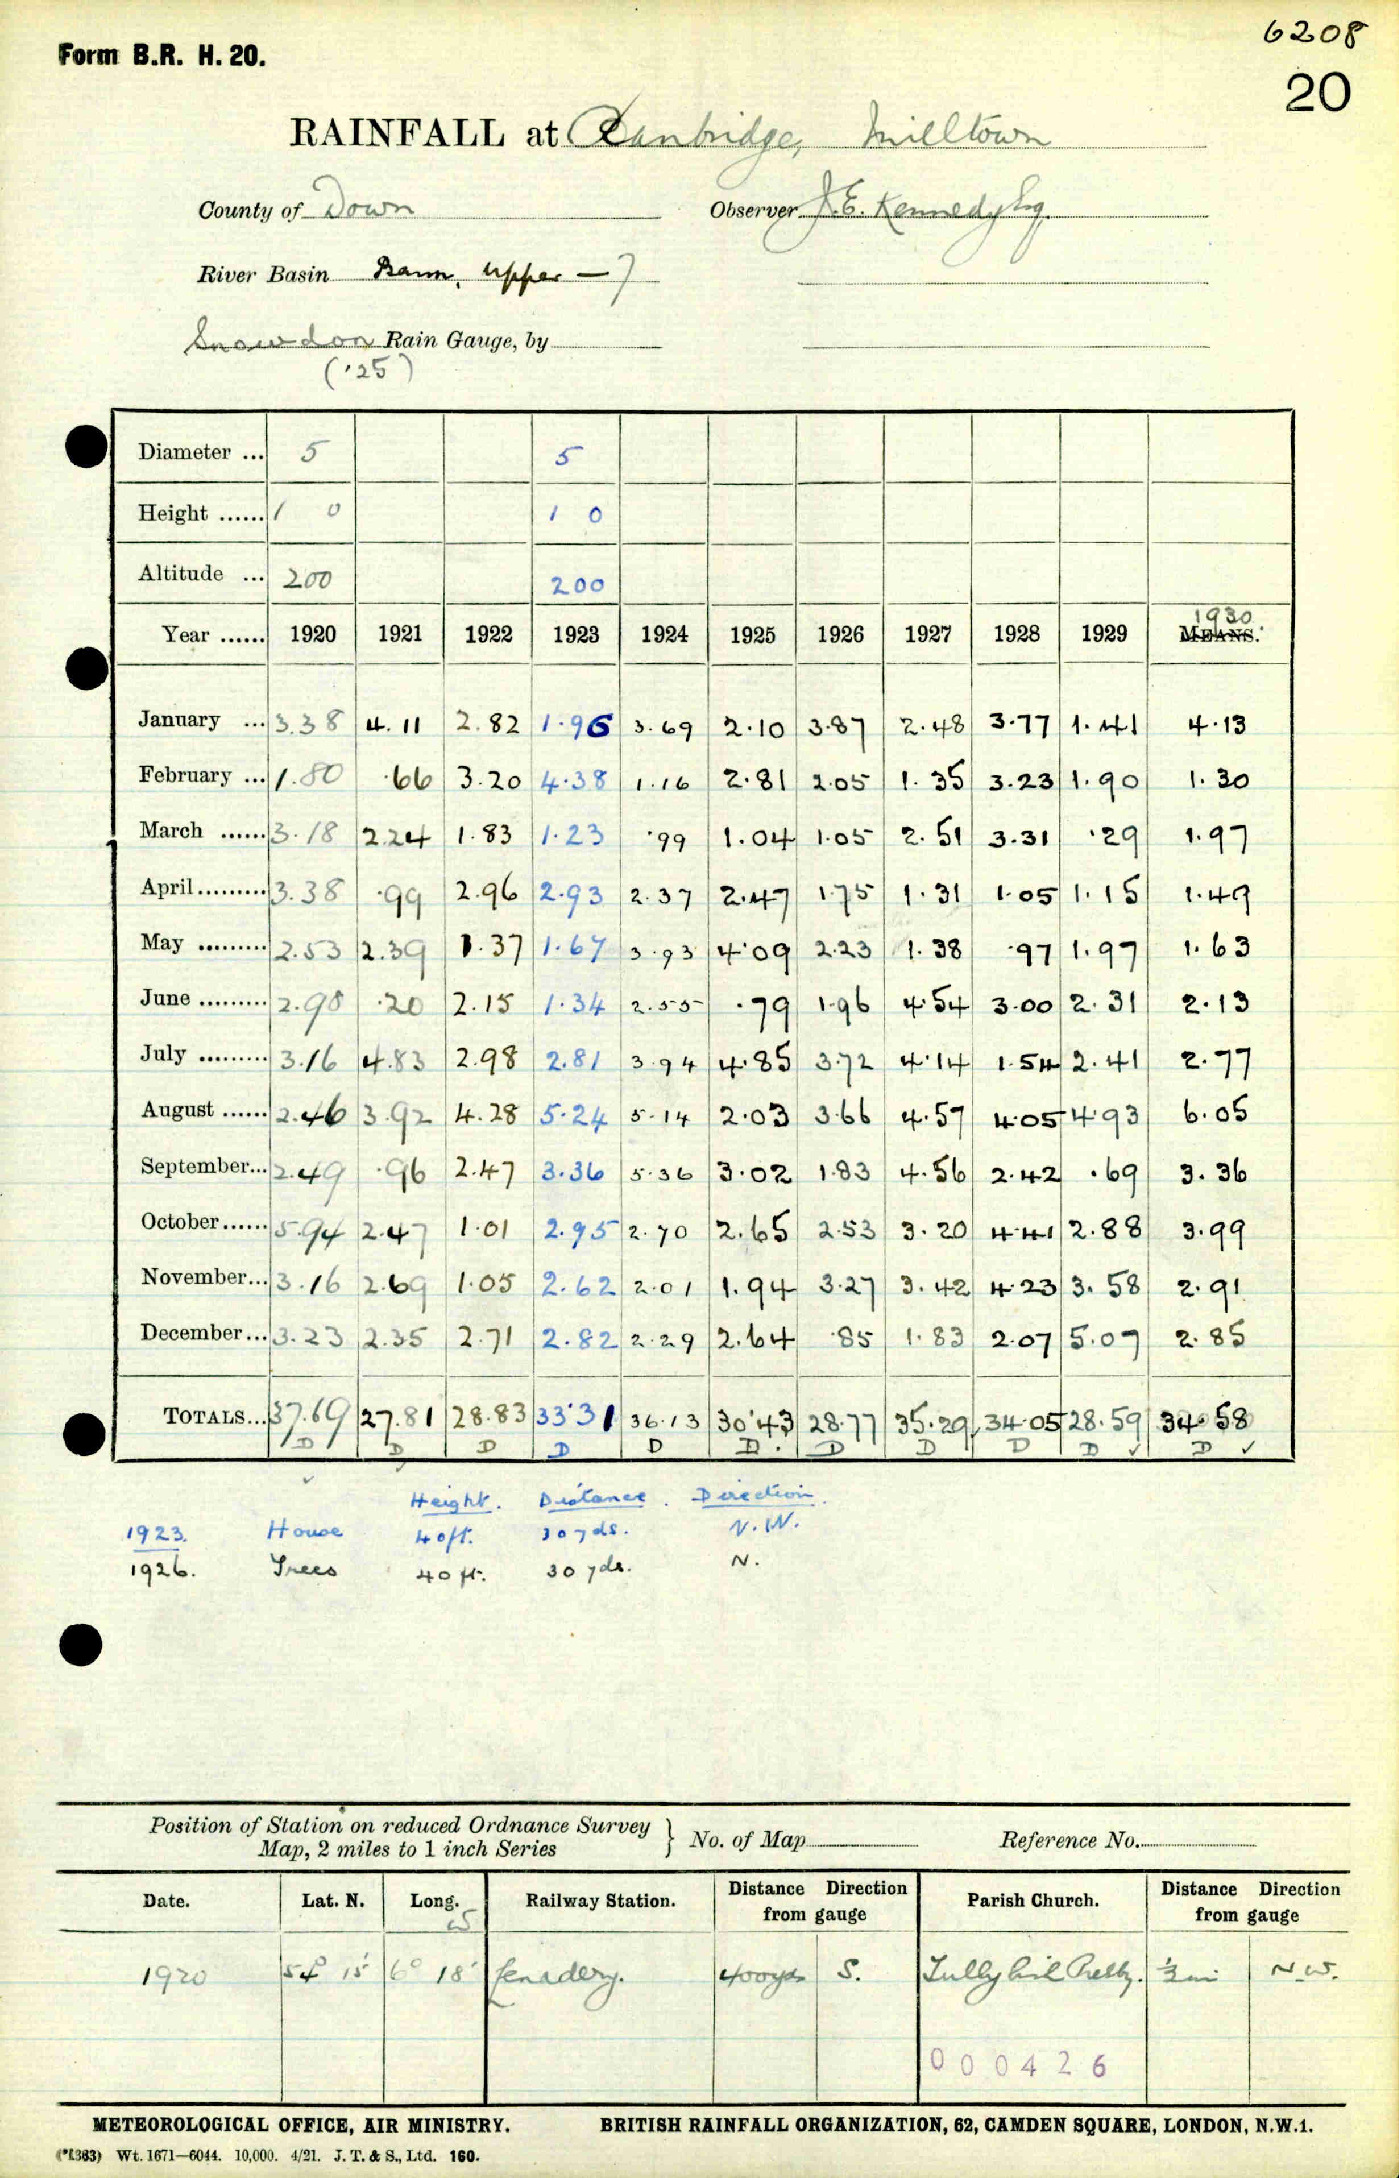 6208
Form B.R. H. 20.
20
RAINFALL at Banbridge, Milltown
County of Down Observer J.E. Kennedy Esq.
River Basin Bann, Upper — 7
Snowdon Rain Gauge, by
('25)
Diameter ... 5 5
Height ...... 1 0 1 0
Altitude ... 200 200
1930
Year ...... 1920 1921 1922 1923 1924 1925 1926 1927 1928 1929 MEANS.
January ... 3.38 4.11 2.82 1.96 3.69 2.10 3.87 2.48 3.77 1.41 4.13
February ... 1.80 .66 3.20 4.38 1.16 2.81 2.05 1.35 3.23 1.90 1.30
March ...... 3.18 2.24 1.83 1.23 .99 1.04 1.05 2.51 3.31 .29 1.97
April......... 3.38 .99 2.96 2.93 2.37 2.47 1.75 1.31 1.05 1.15 1.49
May ......... 2.53 2.39 1.37 1.67 3.93 4.09 2.23 1.38 .97 1.97 1.63
June ......... 2.98 .20 2.15 1.34 2.55 .79 1.96 4.54 3.00 2.31 2.13
July ......... 3.16 4.83 2.98 2.81 3.94 4.85 3.72 4.14 1.54 2.41 2.77
August ...... 2.46 3.92 4.28 5.24 5.14 2.03 3.66 4.57 4.05 4.93 6.05
September... 2.49 .96 2.47 3.36 5.36 3.02 1.83 4.56 2.42 .69 3.36
October...... 5.94 2.47 1.01 2.95 2.70 2.65 2.53 3.20 4.41 2.88 3.99
November... 3.16 2.69 1.05 2.62 2.01 1.94 3.27 3.42 4.23 3.58 2.91
December... 3.23 2.35 2.71 2.82 2.29 2.64 .85 1.83 2.07 5.07 2.85
TOTALS... 37.69 27.81 28.83 33.31 36.13 30.43 28.77 35.29 34.05 28.59 34.58
D D D D D D. D D D D ✓ D ✓
Height. Distance. Direction.
1923. House 40ft. 30 yds. N.W.
1926. Trees 40 ft. 30 yds. N.
Position of Station on reduced Ordnance Survey Map, 2 miles to 1 inch Series } No. of Map Reference No.
Date. Lat. N. Long. W Railway Station. Distance Direction from gauge Parish Church. Distance Direction from gauge
1920 54° 15' 6° 18' Lenadery. 400yds S. Tullylish Presby. ½ mi N.W.
000426
METEOROLOGICAL OFFICE, AIR MINISTRY. BRITISH RAINFALL ORGANIZATION, 62, CAMDEN SQUARE, LONDON, N.W.1.
(*1363) Wt. 1671—6044. 10,000. 4/21. J. T. & S., Ltd. 160.